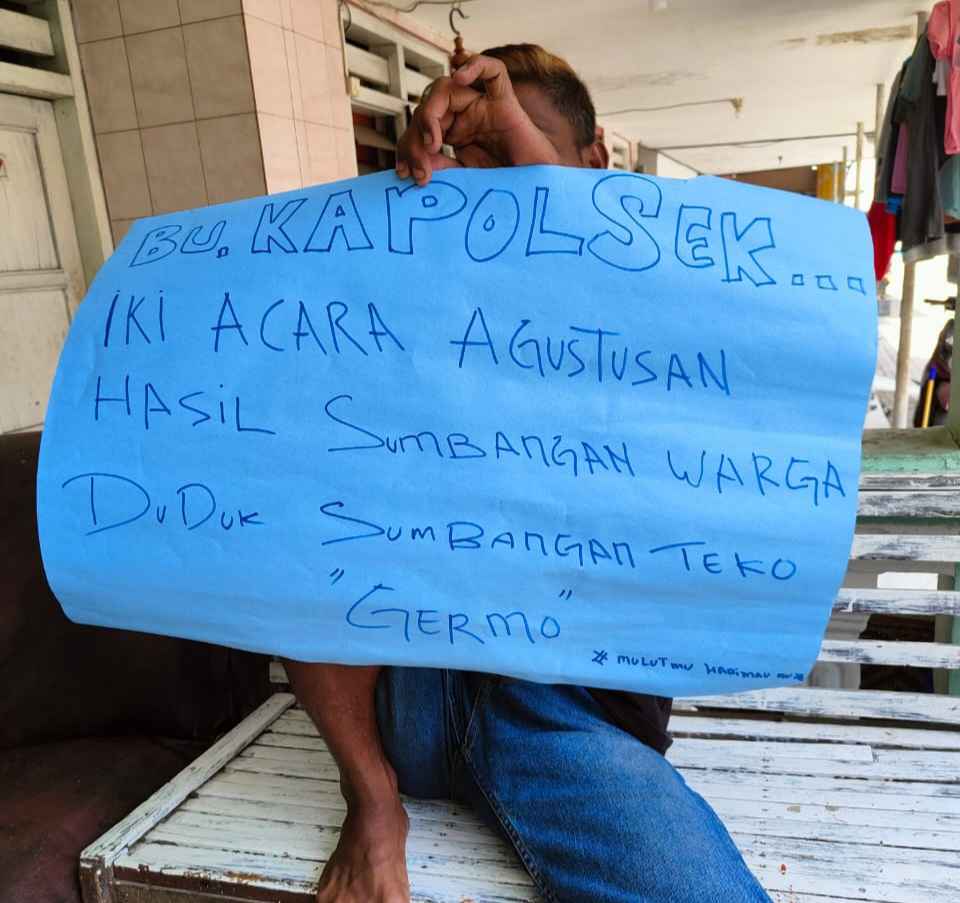 BU. KAPOLSEK...
iKi ACARA AGUSTUSAN
HASiL SumBAnGAN WARGA
DuDuK SumBAnGAn TEKO
"GERmO"
# muLuTmu HARimAu mu